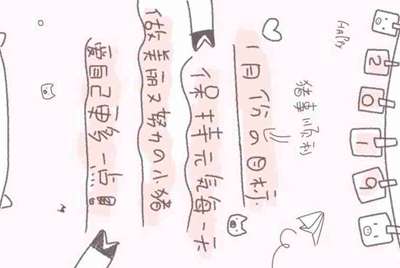 HAPPY
2019
猪事顺利
1月份の目标
保持元气每一天
做美丽又努力の小猪
爱自己更多一点...!!